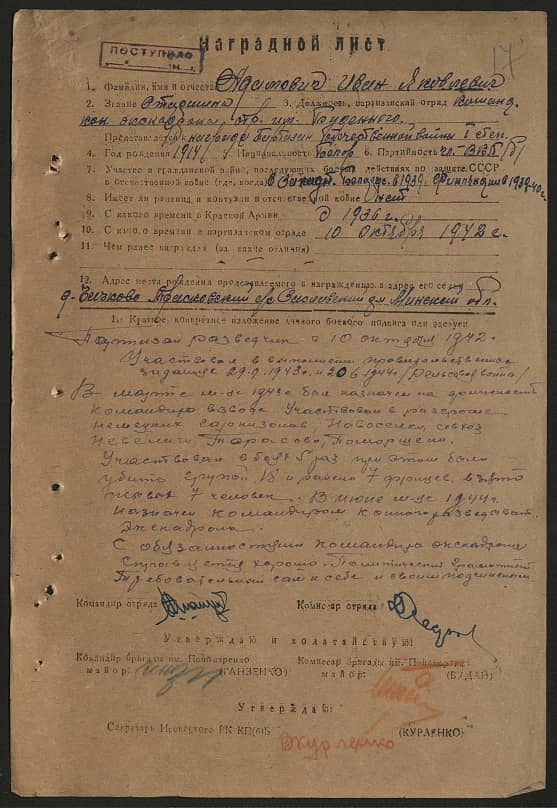 ПОСТУПИЛО
17
Наградной лист
1. Фамилия, имя и отчество Адамович Иван Яковлевич
2. Звание Старшина 3. Должность, партизанский отряд Команд.
кон. эскадрона, отр. им. Буденного.
Представлен к награде Партизан Отечественной войны I степ.
4. Год рождения 1917 г. 5. Национальность Белор. 6. Партийность чл. ВКП(б)
7. Участие в гражданской войне, последующих боевых действиях по защите СССР
в отечественной войне (где, когда) в Западн. Белорус. в 1939. Финляндия в 1939-40 г.
8. Имеет ли ранения и контузии в отечественной войне нет
9. С какого времени в Красной Армии с 1936 г.
10. С какого времени в партизанском отряде 10 октября 1942 г.
11. Чем ранее награжден (за какие отличия)
12. Адрес места рождения представляемого к награждению и адрес его семьи
д. с/с Минской обл.
1. Краткое, конкретное изложение личного боевого подвига или заслуги
Партизан разведчик с 10 октября 1942г.
Участвовал в выполнении правительственного
задания 29.9.1943г. и 20 6 1944г. /Рельсовая война/
В марте м-це 1943г. был назначен на должность
командира взвода. Участвовал в разгроме
немецких гарнизонов, Новоселки, совхоз
Невеличи, Тарасово,
Участвовал в боях 5 раз при этом было
убито группой 18 и ранено 7 фрицев, взято
живых 7 человек. В июне м-це 1944г.
назначен командиром конноразведыват.
эскадрона.
С обязанностями командира эскадрона
справляется хорошо. Политически грамотный
Требовательный сам к себе и своим подчиненным
Командир отряда Комиссар отряда
Утверждаю и ходатайствую:
Командир бригады им. Пономаренко Комиссар бригады им. Пономаренко
майор (ГАНЗЕНКО) майор (БУДАЙ)
Утверждаю:
Секретарь Ивенецкого РК КП(б)Б Курленко (КУРЛЕНКО)